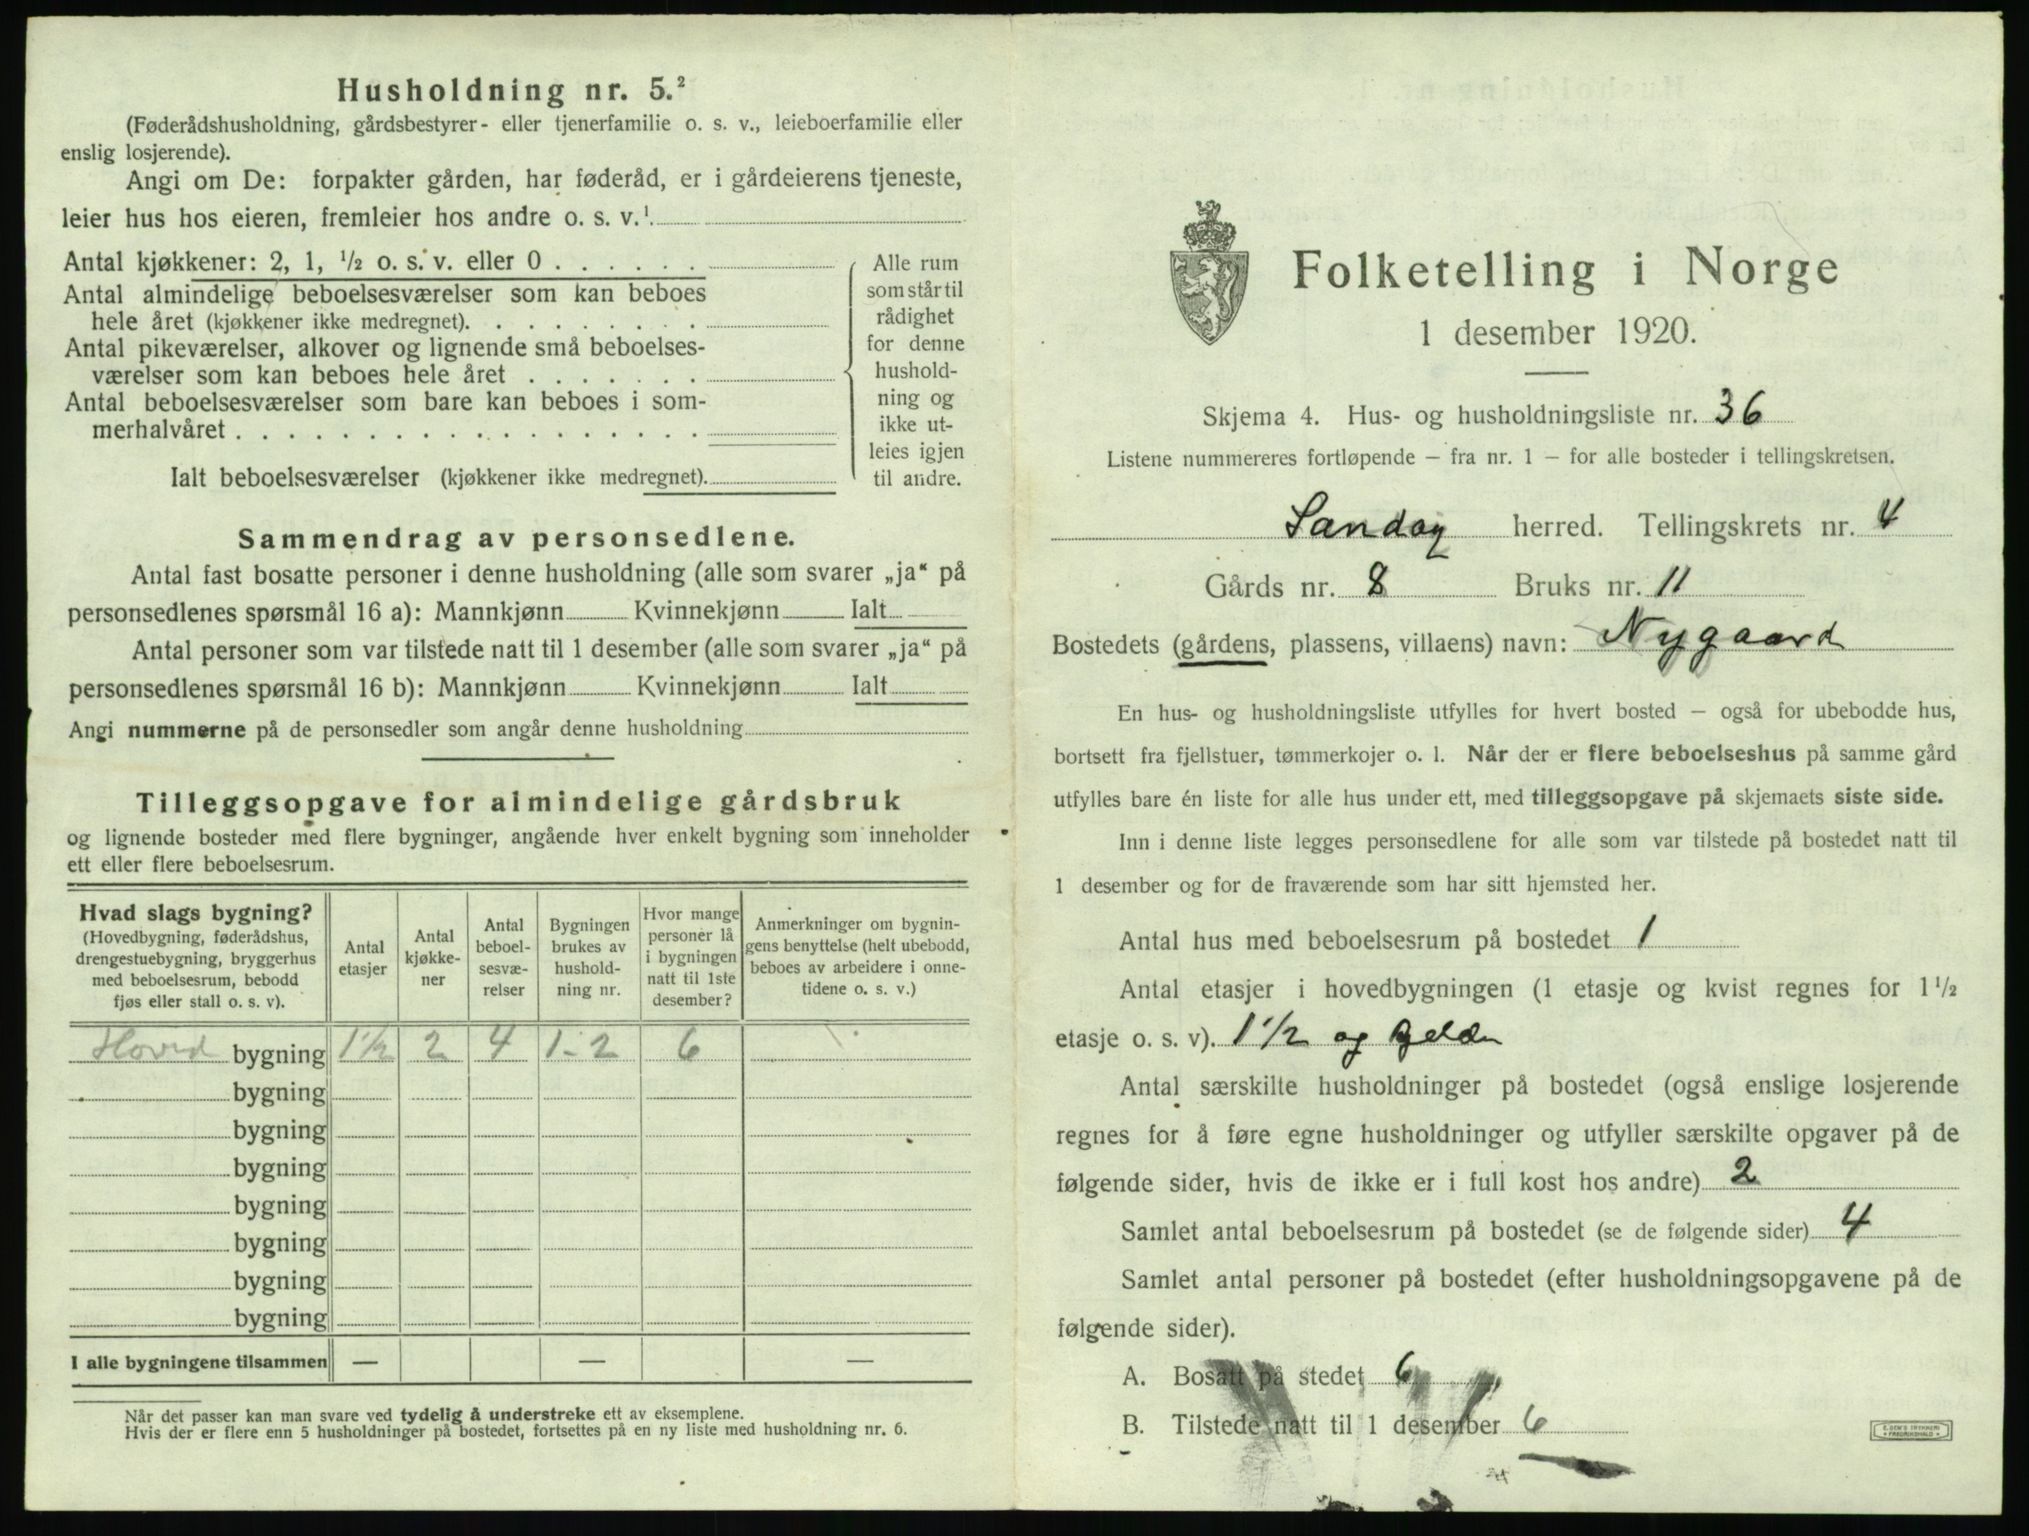 Husholdning nr. 5.²
(Føderådshusholdning, gårdsbestyrer- eller tjenerfamilie o. s. v., leieboerfamilie eller
enslig losjerende).
Angi om De: forpakter gården, har føderåd, er i gårdeierens tjeneste,
leier hus hos eieren, fremleier hos andre o. s. v.¹
Antal kjøkkener: 2, 1, ½ o. s. v. eller 0 . . . . . .
Antal almindelige beboelsesværelser som kan beboes
hele året (kjøkkener ikke medregnet). . . . . . . . .
Antal pikeværelser, alkover og lignende små beboelses-
værelser som kan beboes hele året . . . . . . .
Antal beboelsesværelser som bare kan beboes i som-
merhalvåret . . . . . . . . . . . . . . . . . .
Ialt beboelsesværelser (kjøkkener ikke medregnet).
Alle rum
som står til
rådighet
for denne
hushold-
ning og
ikke ut-
leies igjen
til andre.
Sammendrag av personsedlene.
Antal fast bosatte personer i denne husholdning (alle som svarer „ja“ på
personsedlenes spørsmål 16 a): Mannkjønn Kvinnekjønn Ialt
Antal personer som var tilstede natt til 1 desember (alle som svarer „ja“ på
personsedlenes spørsmål 16 b): Mannkjønn Kvinnekjønn Ialt
Angi nummerne på de personsedler som angår denne husholdning
Tilleggsopgave for almindelige gårdsbruk
og lignende bosteder med flere bygninger, angående hver enkelt bygning som inneholder
ett eller flere beboelsesrum.
Hvad slags bygning?
(Hovedbygning, føderådshus,
drengestuebygning, bryggerhus
med beboelsesrum, bebodd
fjøs eller stall o. s. v).
Antal
etasjer
Antal
kjøkke-
ner
Antal
beboel-
sesvæ-
relser
Bygningen
brukes av
hushold-
ning nr.
Hvor mange
personer lå
i bygningen
natt til 1ste
desember?
Anmerkninger om bygnin-
gens benyttelse (helt ubebodd,
beboes av arbeidere i onne-
tidene o. s. v.)
Hoved bygning 1½ 2 4 1-2 6
bygning
bygning
bygning
bygning
bygning
bygning
bygning
I alle bygningene tilsammen — — —
Når det passer kan man svare ved tydelig å understreke ett av eksemplene.
Hvis der er flere enn 5 husholdninger på bostedet, fortsettes på en ny liste med husholdning nr. 6.
Folketelling i Norge
1 desember 1920.
Skjema 4. Hus- og husholdningsliste nr. 36
Listene nummereres fortløpende — fra nr. 1 — for alle bosteder i tellingskretsen.
Sandøy herred. Tellingskrets nr. 4
Gårds nr. 8 Bruks nr. 11
Bostedets (gårdens, plassens, villaens) navn: Nygaard
En hus- og husholdningsliste utfylles for hvert bosted — også for ubebodde hus,
bortsett fra fjellstuer, tømmerkojer o. l. Når der er flere beboelseshus på samme gård
utfylles bare én liste for alle hus under ett, med tilleggsopgave på skjemaets siste side.
Inn i denne liste legges personsedlene for alle som var tilstede på bostedet natt til
1 desember og for de fraværende som har sitt hjemsted her.
Antal hus med beboelsesrum på bostedet 1
Antal etasjer i hovedbygningen (1 etasje og kvist regnes for 1½
etasje o. s. v). 1½ og
Antal særskilte husholdninger på bostedet (også enslige losjerende
regnes for å føre egne husholdninger og utfyller særskilte opgaver på de
følgende sider, hvis de ikke er i full kost hos andre) 2
Samlet antal beboelsesrum på bostedet (se de følgende sider) 4
Samlet antal personer på bostedet (efter husholdningsopgavene på de
følgende sider).
A. Bosatt på stedet 6
B. Tilstede natt til 1 desember 6